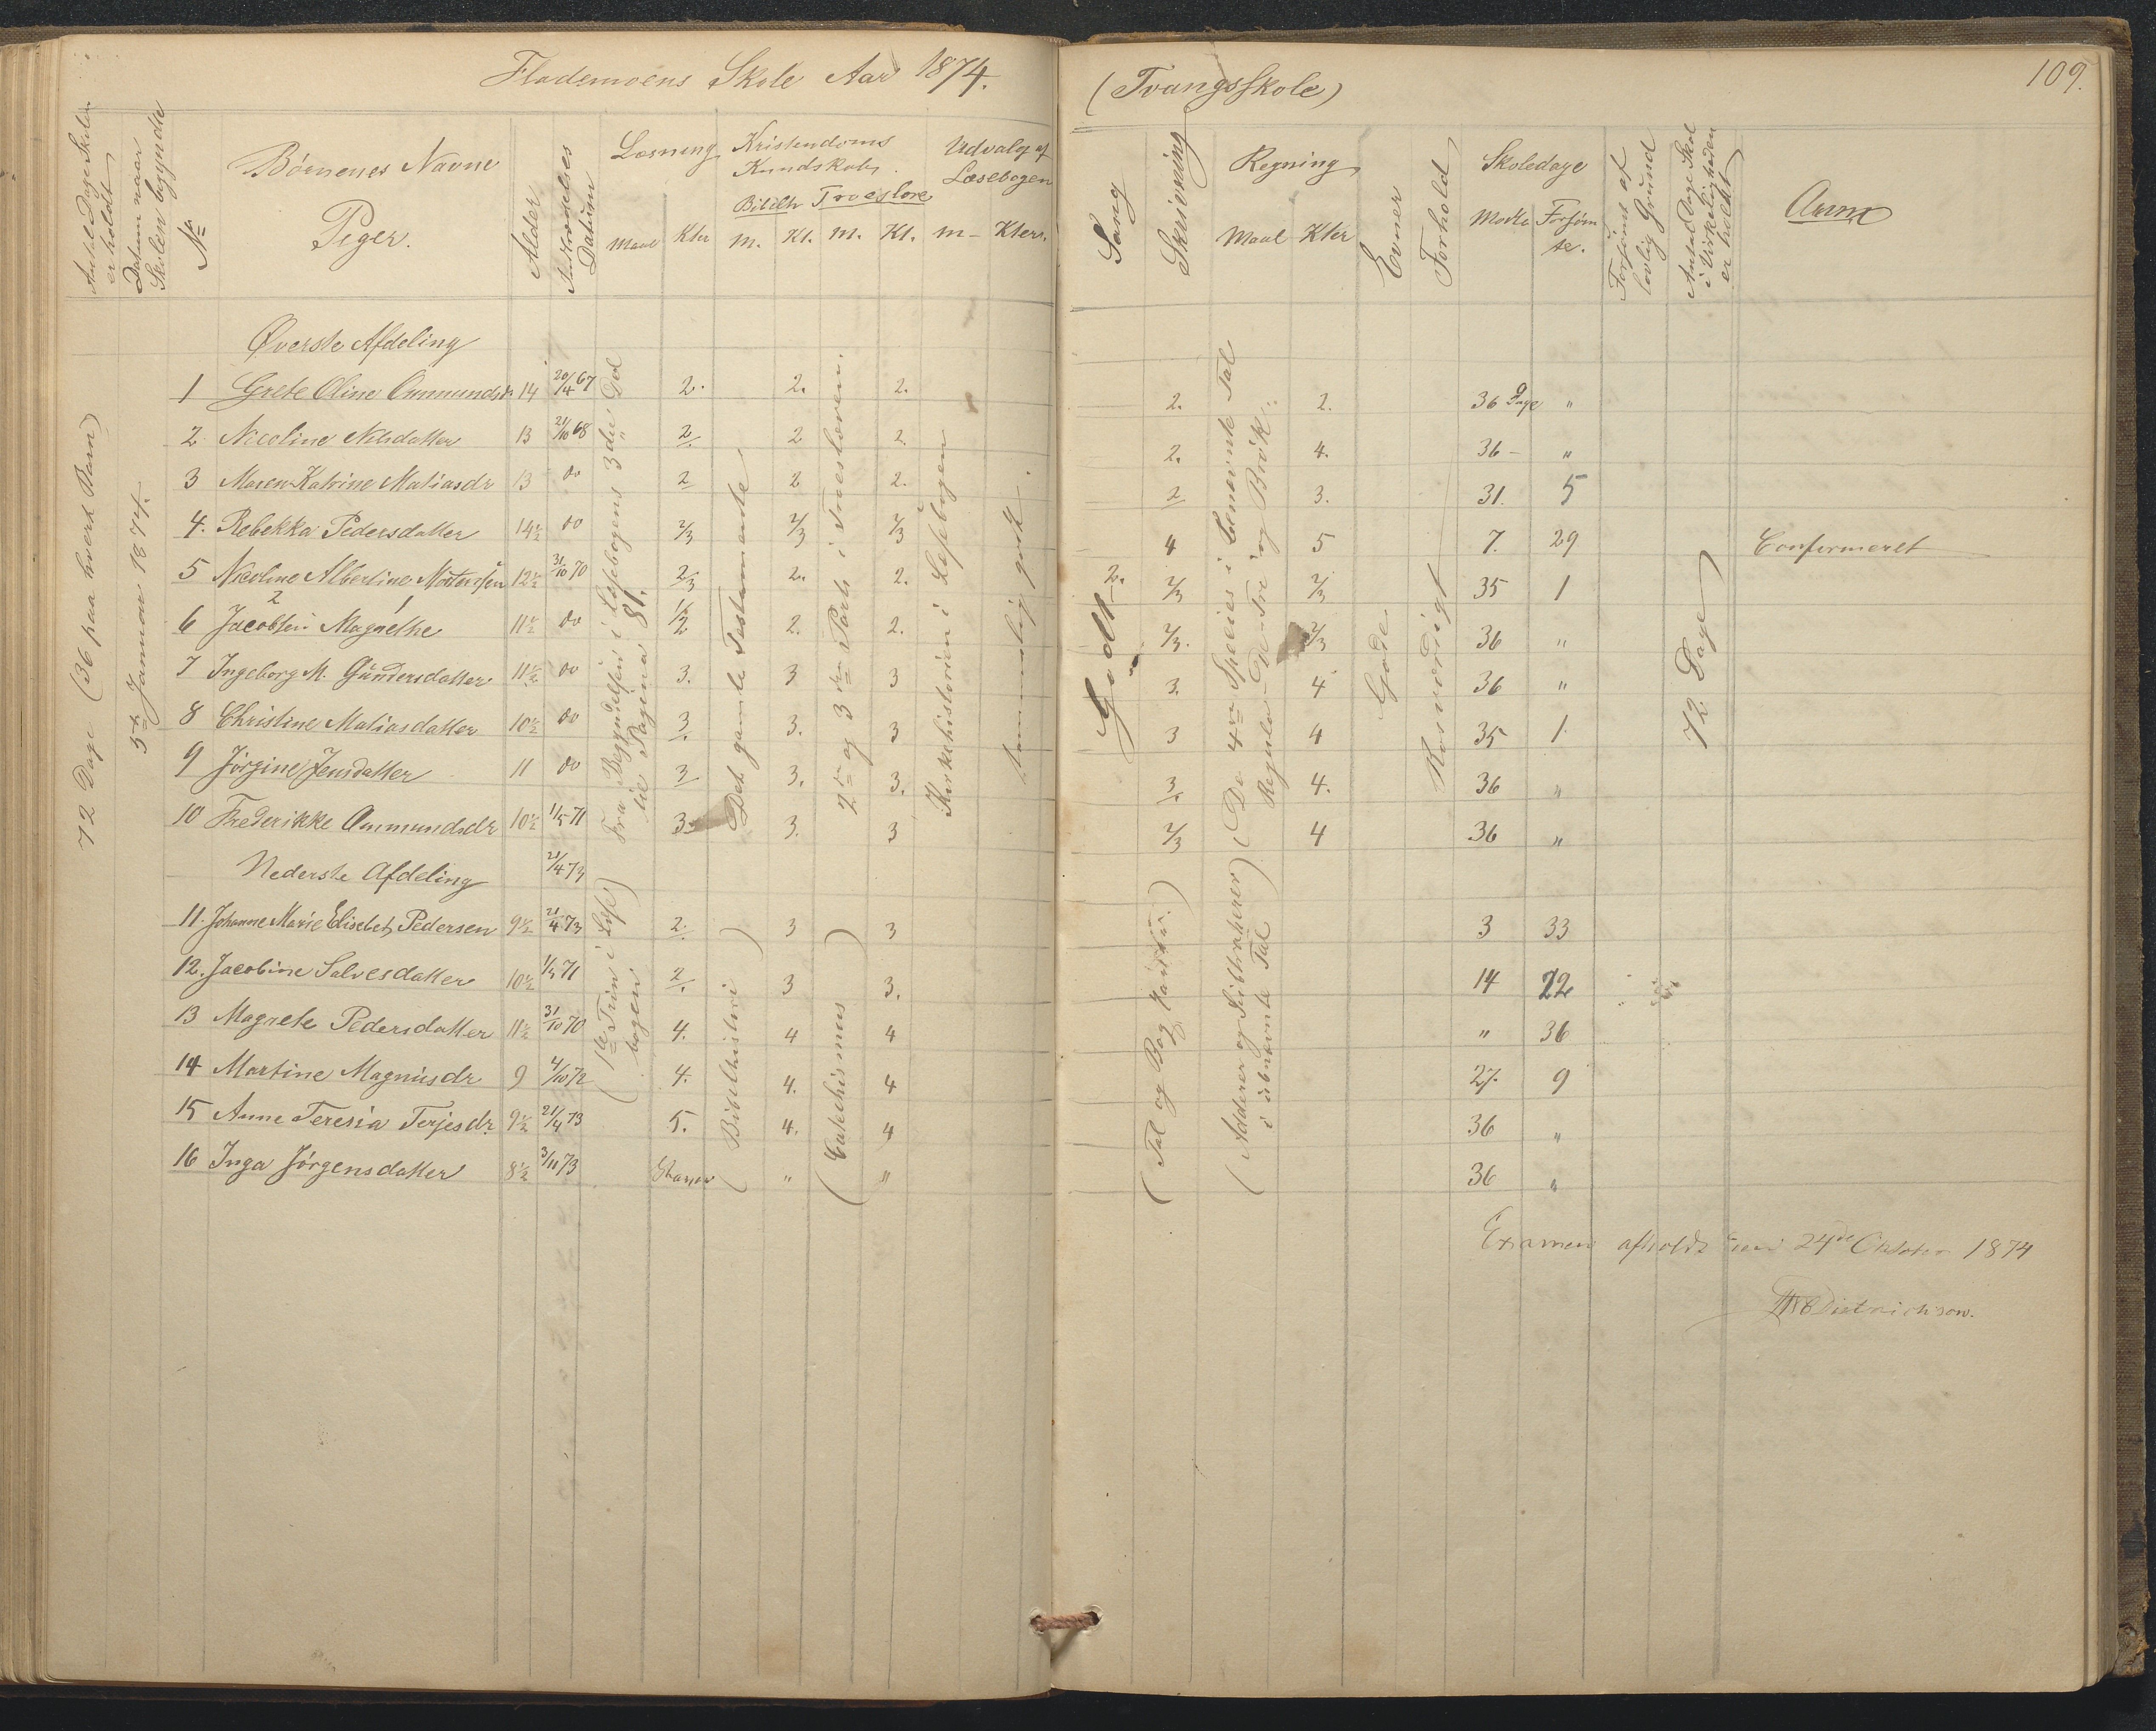 Flademoens Skole Aar 1874.
(Tvangsskole)
109.
Antal Dage Skolen er holdt
Datum naar Skolen begyndte
No
Børnenes Navne
Piger.
Alder
Indtrædelses Datum
Læsning
Maal Kter
Kristendoms Kundskab.
Bibelh Troeslære
M. Kt. M. Kt.
Udvalg af Læsebogen
M– Kter.
Sang
Skrivning
Regning
Maal Kter
Evner
Forhold
Skoledage
Mødte Forsømte.
Forsømt af lovlig Grund
Antal Dage Skol i Virkeligheden er holdt
Anm
72 Dage (36 paa hvert Barn)
5te Januar 1874.
Øverste Afdeling
1 Grete Oline Ommundsdr 14 20/4 67 2. 2. 2. 2. 2. 36 Dage "
2 Nicoline Nilsdatter 13 21/10 68 2. 2 2. 2. 4. 36 – "
3 Maren Katrine Matiasdr 13 do 2 2 2. 2 3. 31. 5
4. Rebekka Pedersdatter 14½ do 2/3 2/3 2/3 4 5 7. 29 Confirmeret
5 Nicoline Albertine Mortensen 12½ 31/10 70 2/3 2. 2. 2/3 2/3 35 1
6 Jacobsen Magnethe 11½ do 1/2 2. 2. 2/3. 2/3 36 "
7 Ingeborg M. Gundersdatter 11½ do 3. 3 3 3. 4 36 "
8 Christine Matiasdatter 10½ do 3. 3. 3 3 4 35 1
9 Jörgine Jensdatter 11 do 3 3. 3. 3. 4. 36 "
10 Frederikke Ommundsdr 10½ 1/5 71 3. 3. 3 2/3 4 36 "
Nederste Afdeling 21/4 73
11. Johanne Marie Elisebet Pedersen 9½ 21/4 73 2. 3 3 3 33
12. Jacobine Salvesdatter 10½ 1/5 71 2. 3 3. 14 22
13 Magnete Pedersdatter 11½ 31/10 70 4. 4 4 " 36
14 Martine Magnusdr 9 4/10 72 4. 4. 4 27. 9
15 Anne Teresia Terjesdr. 9½ 21/4 73 5. 4. 4 36 "
16 Inga Jörgensdatter 8½ 3/11 73 Staver " " 36 "
Fra Begyndelsen i Læsebogens 3die Del til Pagina 81.
(1ste Trin i Læsebogen)
Det gamle Testamente
(Bibelhistori)
2den og 3die Parts i Troeslæren.
(Catechismus)
Kirkehistorien i Læsebogen
temmelig godt
Godt 2.
(Tal og Bogstaver.)
(De 4re Species i Benævnte Tal Regula-De-Tri og Brök.
(Adderer og Subtraherer) i ubnævnte Tal
Gode
Rosværdigt
72 Dage
Examen afholdt den 24de Oktober 1874
Dietrichson.